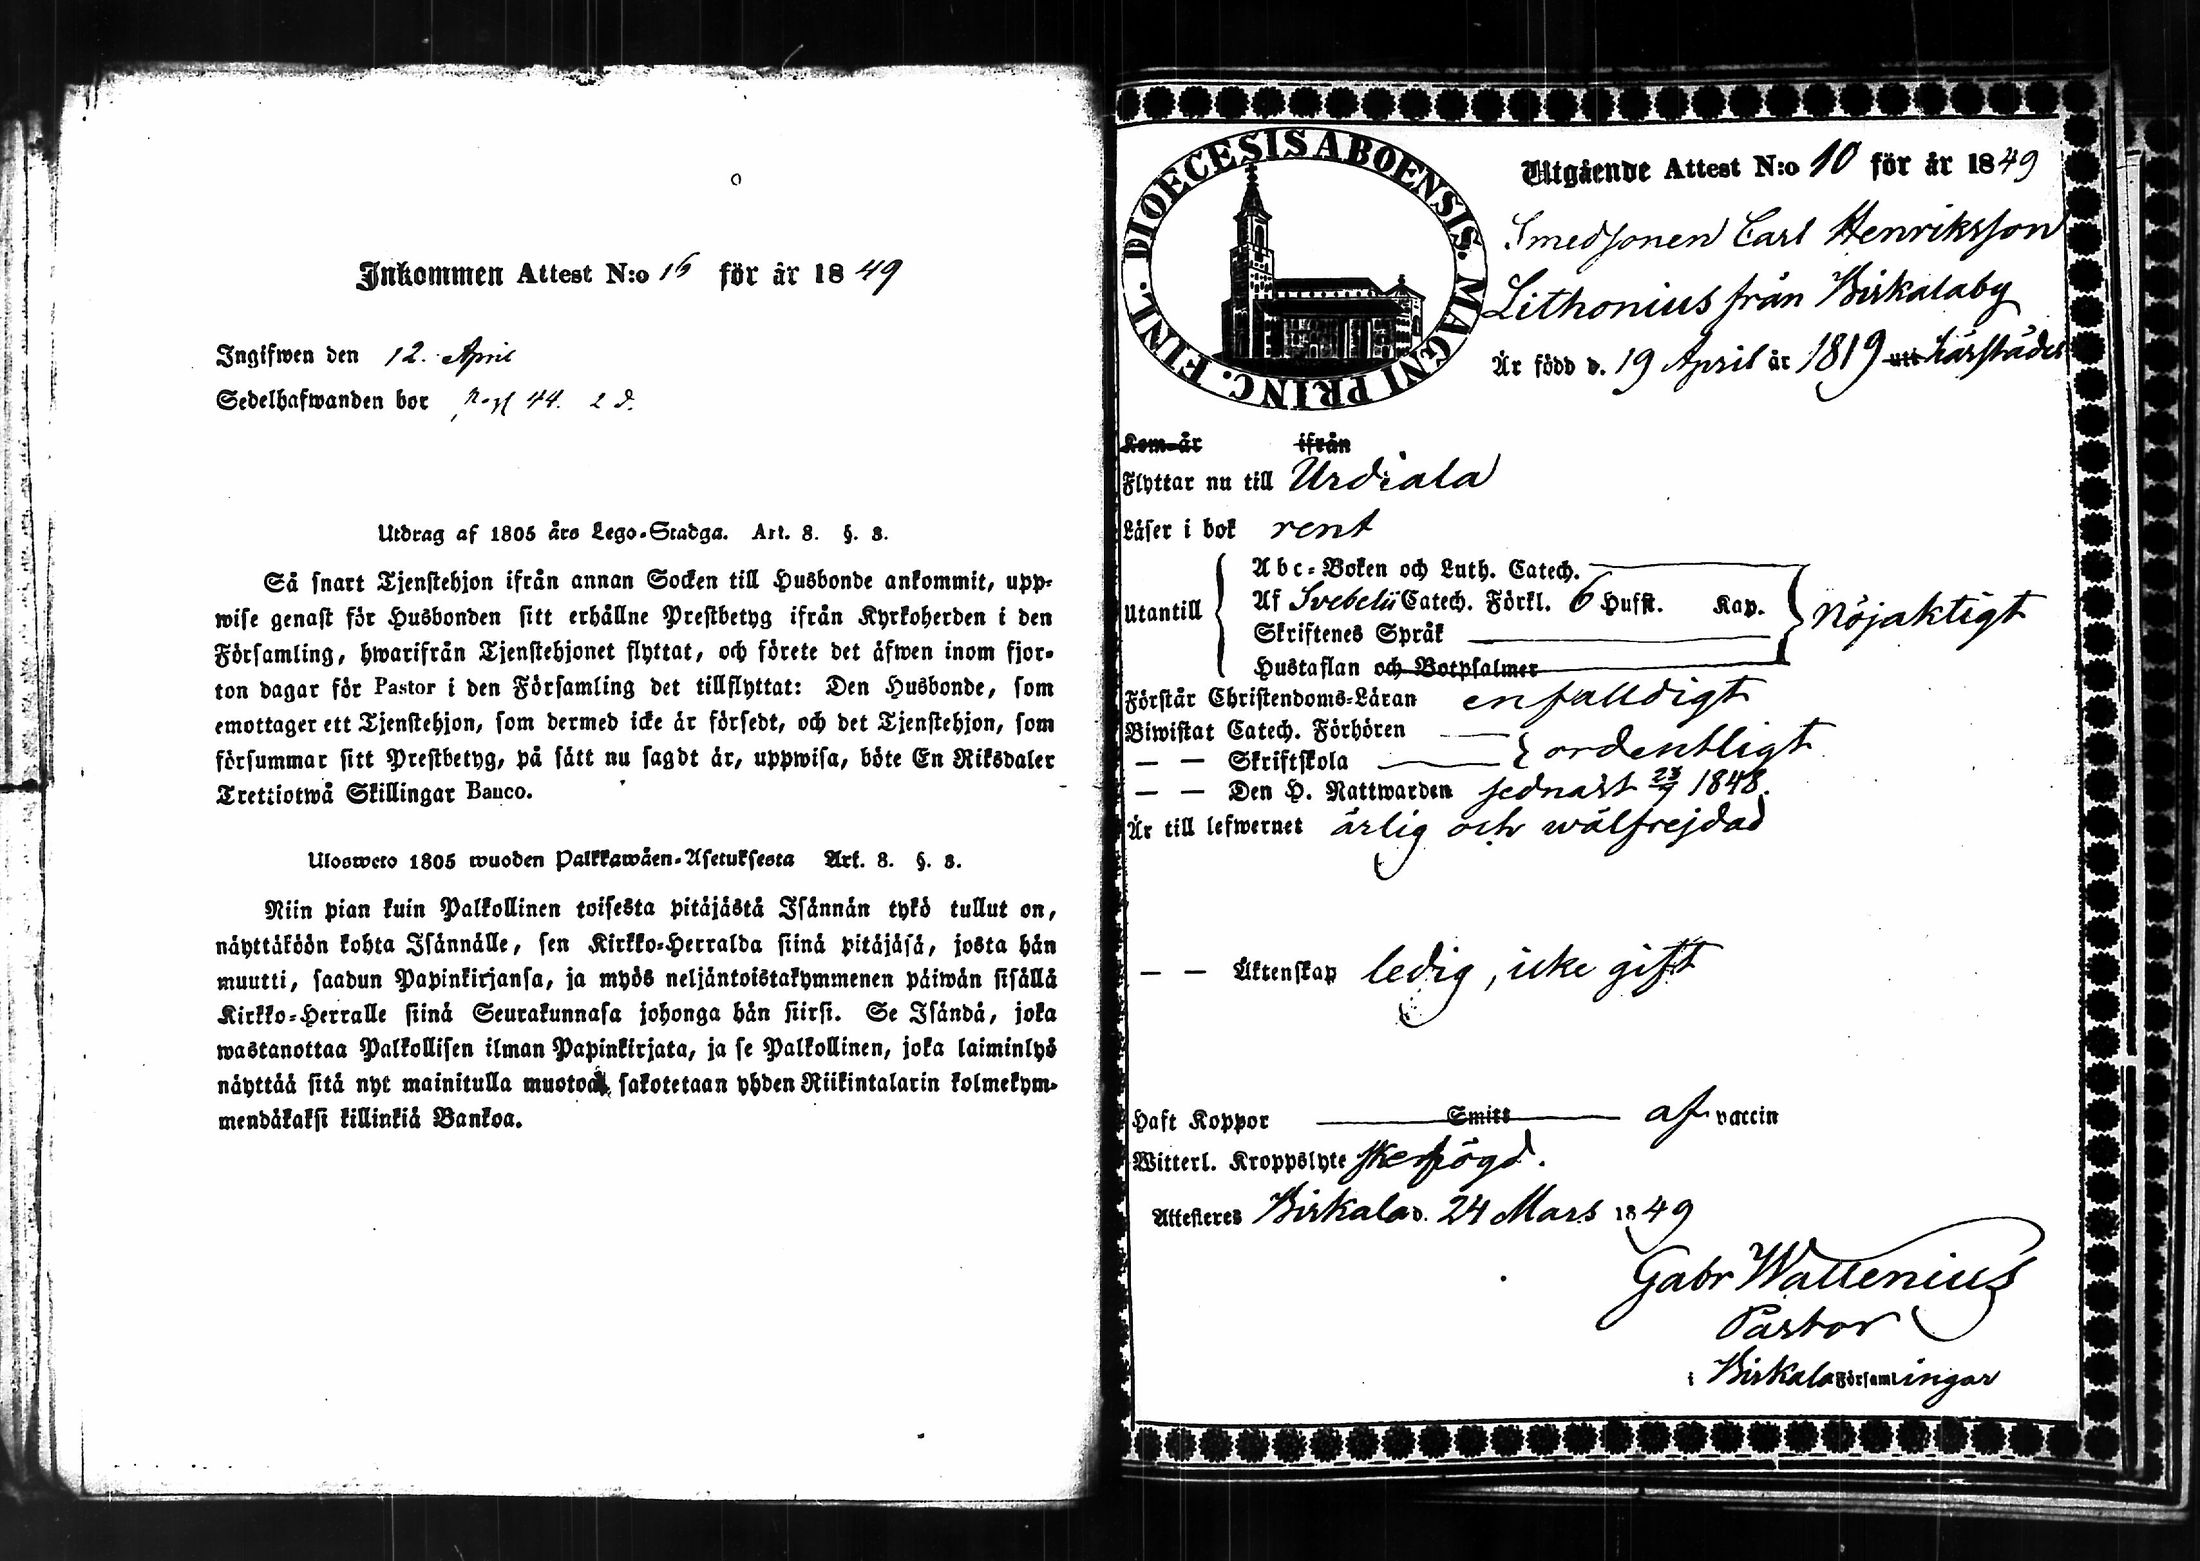 Inkommen Attest N:o 16 för år 1849
Ingifwen den 12. April
Sedelhafwanden bor pag 44. 2 d.
Utdrag af 1805 års Lego-Stadga. Art. 8. §. 3.
Så snart Tjenstehjon ifrån annan Socken till Husbonde ankommit, upp-
wise genast för Husbonden sitt erhållne Prestbetyg ifrån Kyrkoherden i den
Församling, hwarifrån Tjenstehjonet flyttat, och förete det äfwen inom fjor-
ton dagar för Pastor i den Församling det tillflyttat: Den Husbonde, som
emottager ett Tjenstehjon, som dermed icke är försedt, och det Tjenstehjon, som
försummar sitt Prestbetyg, på sätt nu sagdt är, uppwisa, böte En Riksdaler
Trettiotwå Skillingar Banco.
Ulosweto 1805 wuoden Palkkawäen-Asetuksesta Art. 8. §. 3.
Niin pian kuin Palkollinen toisesta pitäjästä Isännän tykö tullut on,
näyttäköön kohta Isännälle, sen Kirkko-Herralda siinä pitäjäsä, josta hän
muutti, saadun Papinkirjansa, ja myös neljäntoistakymmenen päiwän sisällä
Kirkko-Herralle siinä Seurakunnasa johonga hän siirsi. Se Isändä, joka
wastanottaa Palkollisen ilman Papinkirjata, ja se Palkollinen, joka laiminlyö
näyttää sitä nyt mainitulla muotoa, sakotetaan yhden Riikintalarin kolmekym-
mendäkaksi killinkiä Bankoa.
DIOECESIS ABOENSIS. MAGNI PRINC. FINL.
Utgående Attest N:o 10 för år 1849
Smedsonen Carl Henriksson
Lithonius från Birkalaby
Är född d. 19 April år 1819 uti härstädes
Kom år ifrån
Flyttar nu till Urdiala
Läser i bok rent
Utantill
Abc-Boken och Luth. Catech.
Af Svebelii Catech. Förkl. 6 Hufst. Kap.
Skriftenes Språk
Hustaflan och Botpsalmer
nöjaktigt
Förstår Christendoms-Läran enfalldigt
Biwistat Catech. Förhören
— — Skriftskola
ordentligt
— — Den H. Nattwarden sednast 23/9 1848.
Är till lefwernet ärlig och wälfrejdad
— — Äktenskap ledig, icke gift
Haft Koppor Smitt af vaccin
Witterl. Kroppslyte skelögd.
Attesteres Birkala d. 24 Mars 1849
Gabr Wallenius
Pastor
i Birkala Församlingar